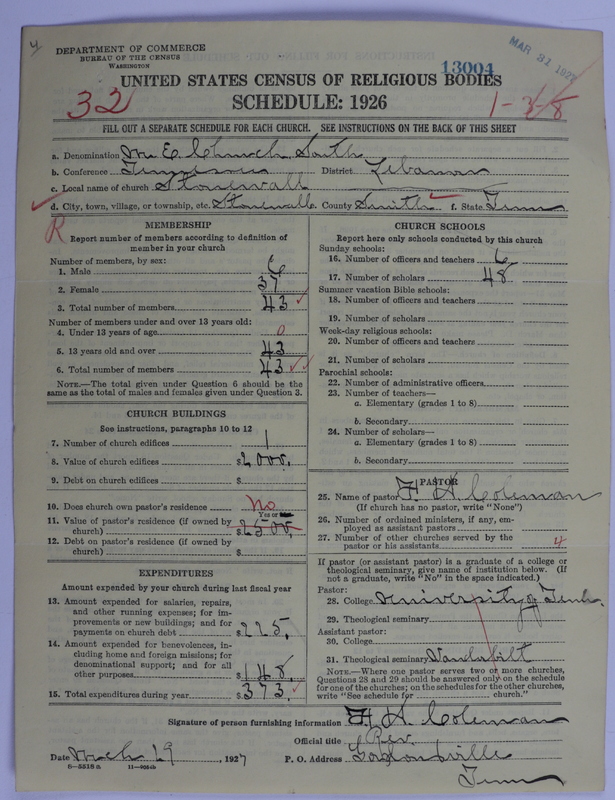 4
DEPARTMENT OF COMMERCE
BUREAU OF THE CENSUS
WASHINGTON
MAR 31 1927
13004
UNITED STATES CENSUS OF RELIGIOUS BODIES
32
SCHEDULE: 1926
1-3-8
FILL OUT A SEPARATE SCHEDULE FOR EACH CHURCH. SEE INSTRUCTIONS ON THE BACK OF THIS SHEET
a. Denomination M E Church South
b. Conference Tennessee District Lebanon
c. Local name of church Stonewall
d. City, town, village, or township, etc. Stonewall e. County Smith f. State Tenn
R
MEMBERSHIP
Report number of members according to definition of
member in your church
Number of members, by sex:
1. Male 6
2. Female 37
3. Total number of members 43
Number of members under and over 13 years old:
4. Under 13 years of age 0
5. 13 years old and over 43
6. Total number of members 43
NOTE.—The total given under Question 6 should be the
same as the total of males and females given under Question 3.
CHURCH BUILDINGS
See instructions, paragraphs 10 to 12
7. Number of church edifices 1
8. Value of church edifices $2000.
9. Debt on church edifices $
10. Does church own pastor's residence No
Yes or No
11. Value of pastor's residence (if owned by
church) $2500.
12. Debt on pastor's residence (if owned by
church) $
EXPENDITURES
Amount expended by your church during last fiscal year
13. Amount expended for salaries, repairs,
and other running expenses; for im-
provements or new buildings; and for
payments on church debt $225.
14. Amount expended for benevolences, in-
cluding home and foreign missions; for
denominational support; and for all
other purposes $148.
15. Total expenditures during year $373.
CHURCH SCHOOLS
Report here only schools conducted by this church
Sunday schools:
16. Number of officers and teachers 6
17. Number of scholars 48
Summer vacation Bible schools:
18. Number of officers and teachers
19. Number of scholars
Week-day religious schools:
20. Number of officers and teachers
21. Number of scholars
Parochial schools:
22. Number of administrative officers
23. Number of teachers—
a. Elementary (grades 1 to 8)
b. Secondary
24. Number of scholars—
a. Elementary (grades 1 to 8)
b. Secondary
PASTOR
25. Name of pastor F. A. Coleman
(If church has no pastor, write "None")
26. Number of ordained ministers, if any, em-
ployed as assistant pastors
27. Number of other churches served by the
pastor or his assistants 4
If pastor (or assistant pastor) is a graduate of a college or
theological seminary, give name of institution below. (If
not a graduate, write "No" in the space indicated.)
Pastor:
28. College University of Tenn.
29. Theological seminary
Assistant pastor:
30. College
31. Theological seminary Vanderbilt
NOTE.—Where one pastor serves two or more churches,
Questions 28 and 29 should be answered only on the schedule
for one of the churches; on the schedules for the other churches,
write "See schedule for church."
Signature of person furnishing information F. A. Coleman
Official title Rev.
Date Mch 29, 1927 P. O. Address Gordonsville
6-5518 a 11-8034b Tenn